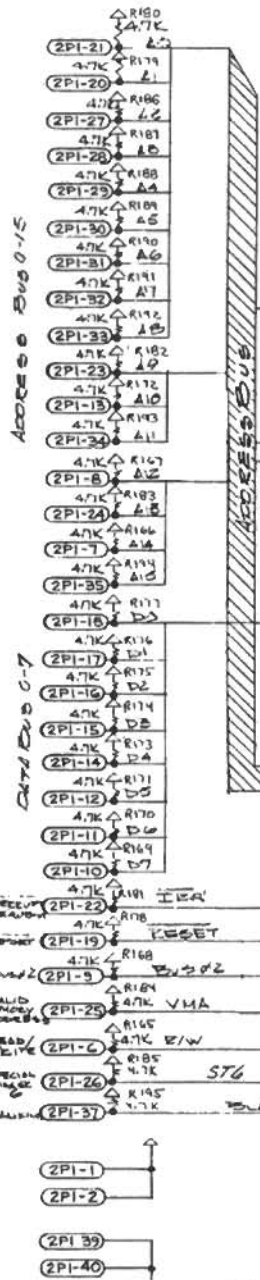 R180
4.7K
2P1-21 A0
4.7K R179
2P1-20 A1
4.7K R186
2P1-27 A2
4.7K R187
2P1-28 A3
4.7K R188
2P1-29 A4
4.7K R189
2P1-30 A5
4.7K R190
2P1-31 A6
4.7K R191
2P1-32 A7
4.7K R192
2P1-33 A8
4.7K R182
2P1-23 A9
4.7K R172
2P1-13 A10
4.7K R193
2P1-34 A11
4.7K R167
2P1-8 A12
4.7K R183
2P1-24 A13
4.7K R166
2P1-7 A14
4.7K R194
2P1-35 A15
4.7K R177
2P1-18
4.7K R176
2P1-17 D1
4.7K R175
2P1-16 D2
4.7K R174
2P1-15 D3
4.7K R173
2P1-14 D4
4.7K R171
2P1-12 D5
4.7K R170
2P1-11 D6
4.7K R169
2P1-10 D7
ADDRESS BUS 0-15
DATA BUS 0-7
ADDRESS BUS
4.7K R181
2P1-22
4.7K R178
2P1-19 RESET
4.7K R168
2P1-9 BUS Ø2
R184
2P1-25 4.7K VMA
R165
2P1-6 4.7K R/W
R185
2P1-26 4.7K ST6
R195
2P1-37 4.7K
2P1-1
2P1-2
2P1 39
2P1-40